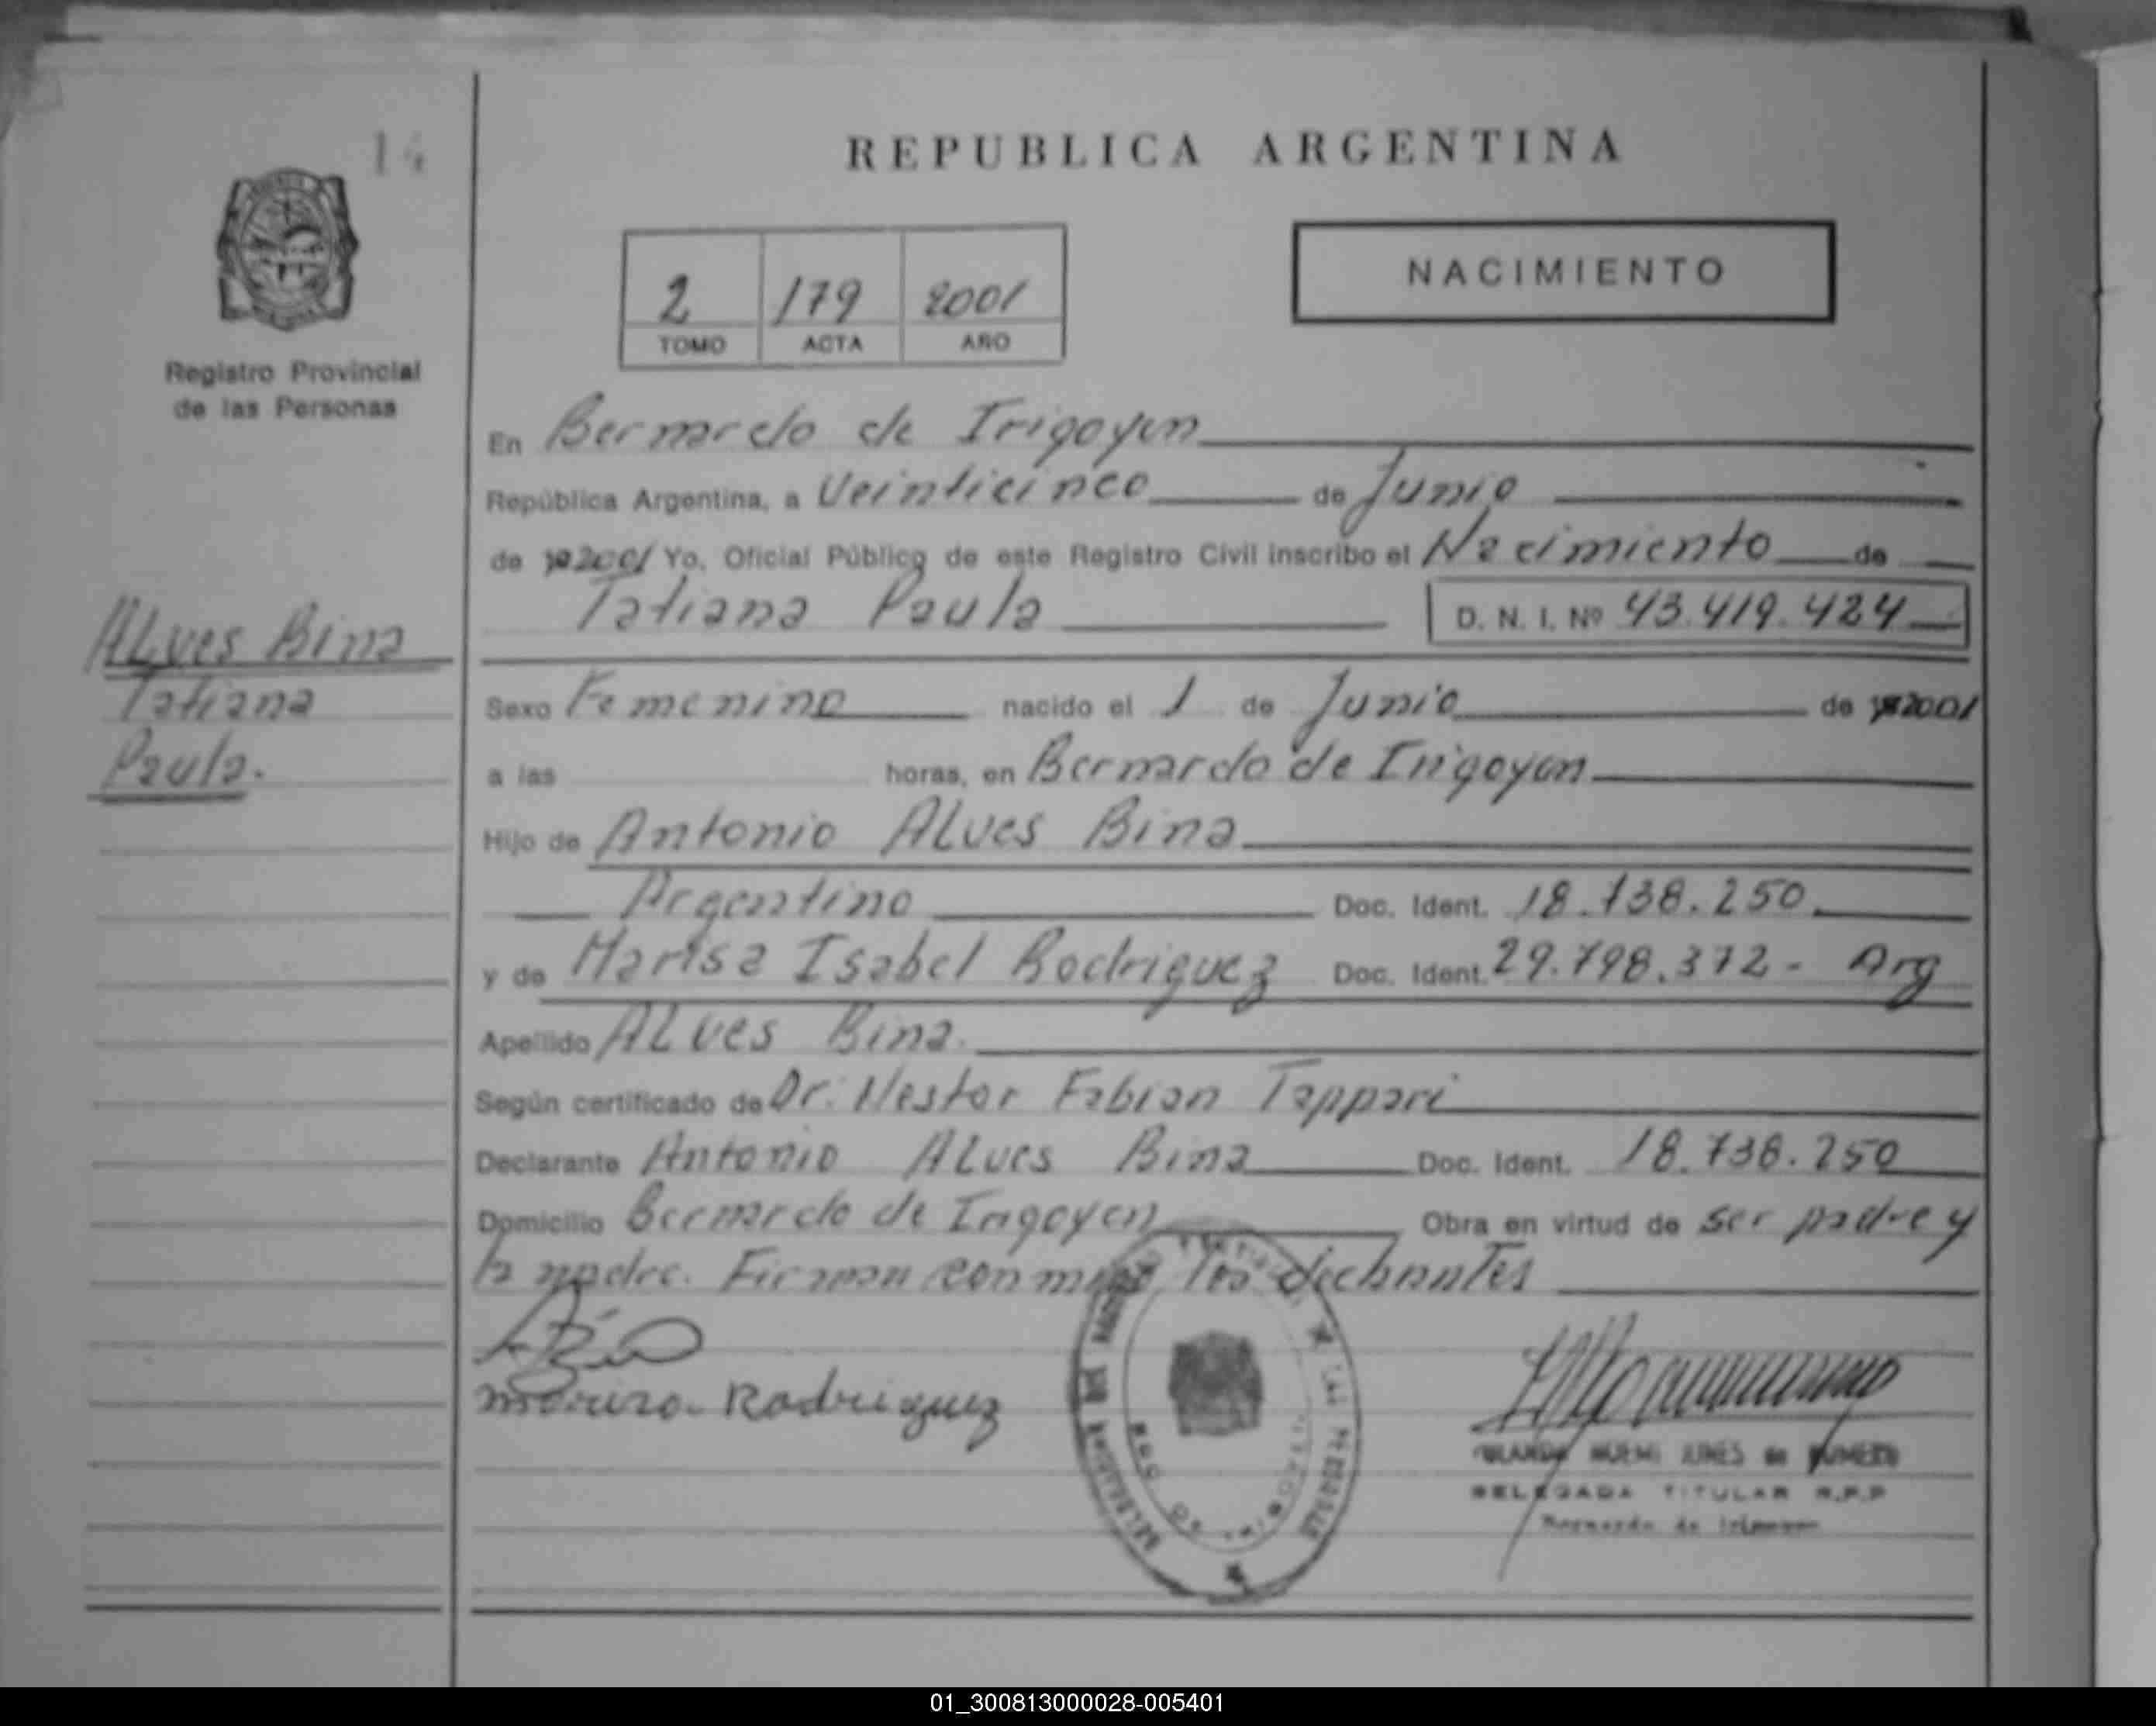 14
REPUBLICA ARGENTINA
2 179 2001
TOMO ACTA AÑO
NACIMIENTO
Registro Provincial
de las Personas
En Bernardo de Irigoyen
República Argentina, a Veinticinco de Junio
de 2001 Yo, Oficial Público de este Registro Civil inscribo el Nacimiento de
Tatiana Paula D. N. I. Nº 43.419.424
ALves Bina
Tatiana
Paula.
Sexo Femenino nacido el 1 de Junio de 2001
a las horas, en Bernardo de Irigoyen
Hijo de Antonio ALves Bina
Argentino Doc. Ident. 18.738.250
y de Marisa Isabel Rodriguez Doc. Ident. 29.798.372 - Arg
Apellido ALves Bina.
Según certificado de Dr. Nestor Fabian Tappari
Declarante Antonio ALves Bina Doc. Ident. 18.738.250
Domicilio Bernardo de Irigoyen Obra en virtud de ser padre y
la madre. Firman con migo los
Rodriguez
DELEGADA TITULAR R.P.P
Bernardo de Irigoyen
01_300813000028-005401